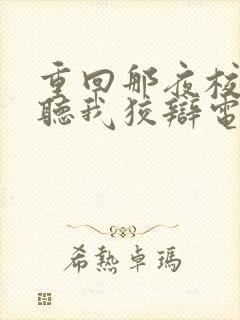 重回那夜校
聽我狡辯電
希熱卓瑪